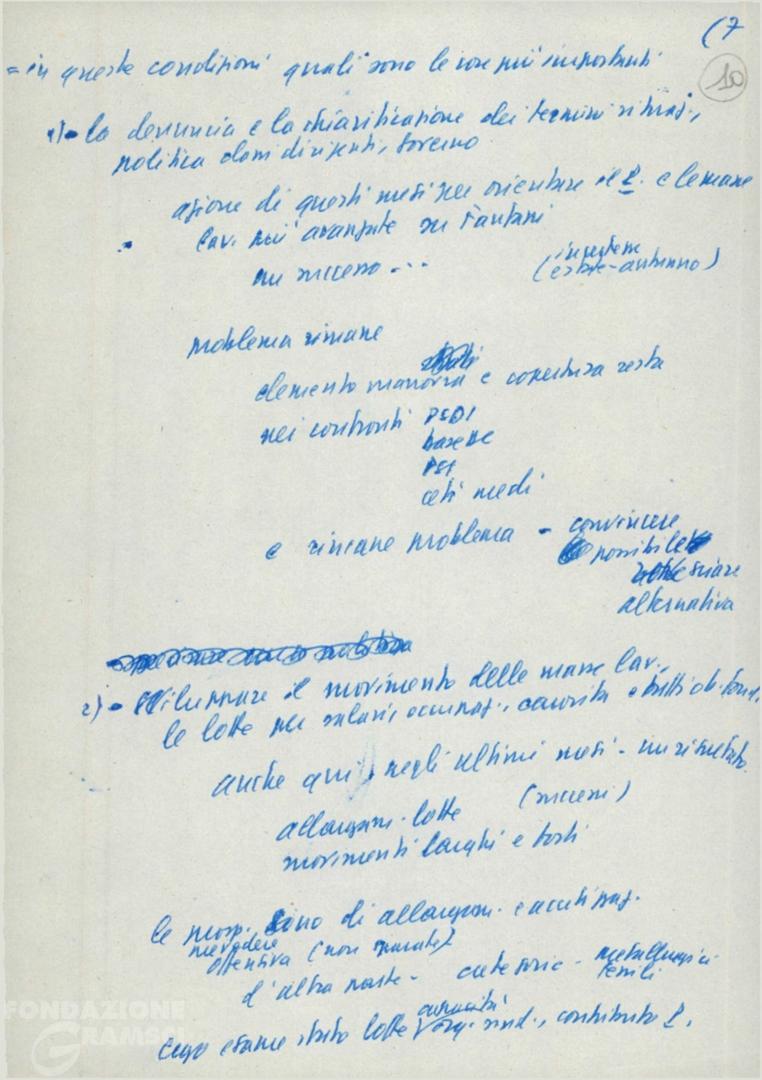 (7
10
= in queste condizioni quali sono le cose più importanti
1) - la denuncia e la chiarificazione dei termini situaz.,
politica classi dirigenti, governo
azione di questi mesi per orientare il P. e le masse
lav. più avanzate su Fanfani
un successo ...
(estate-autunno)
problema rimane
elemento manovra e copertura resta
nei confronti PSDI
base DC
PSI
ceti medi
e rimane problema - convincere
possibile
alternativa
2) - sviluppare il movimento delle masse lav.,
le lotte per salari, occupaz., e tutti ob. fond.
anche qui, negli ultimi mesi - un risultato
allargam. lotte (successi)
movimenti larghi e forti
le prosp. sono di allargam. e acutizzaz.
prevedere
offensiva (non
d'altra parte - categorie - metallurgici
tessili
capacità
esame stato lotte org. sind., contributo P.
FONDAZIONE
GRAMSCI